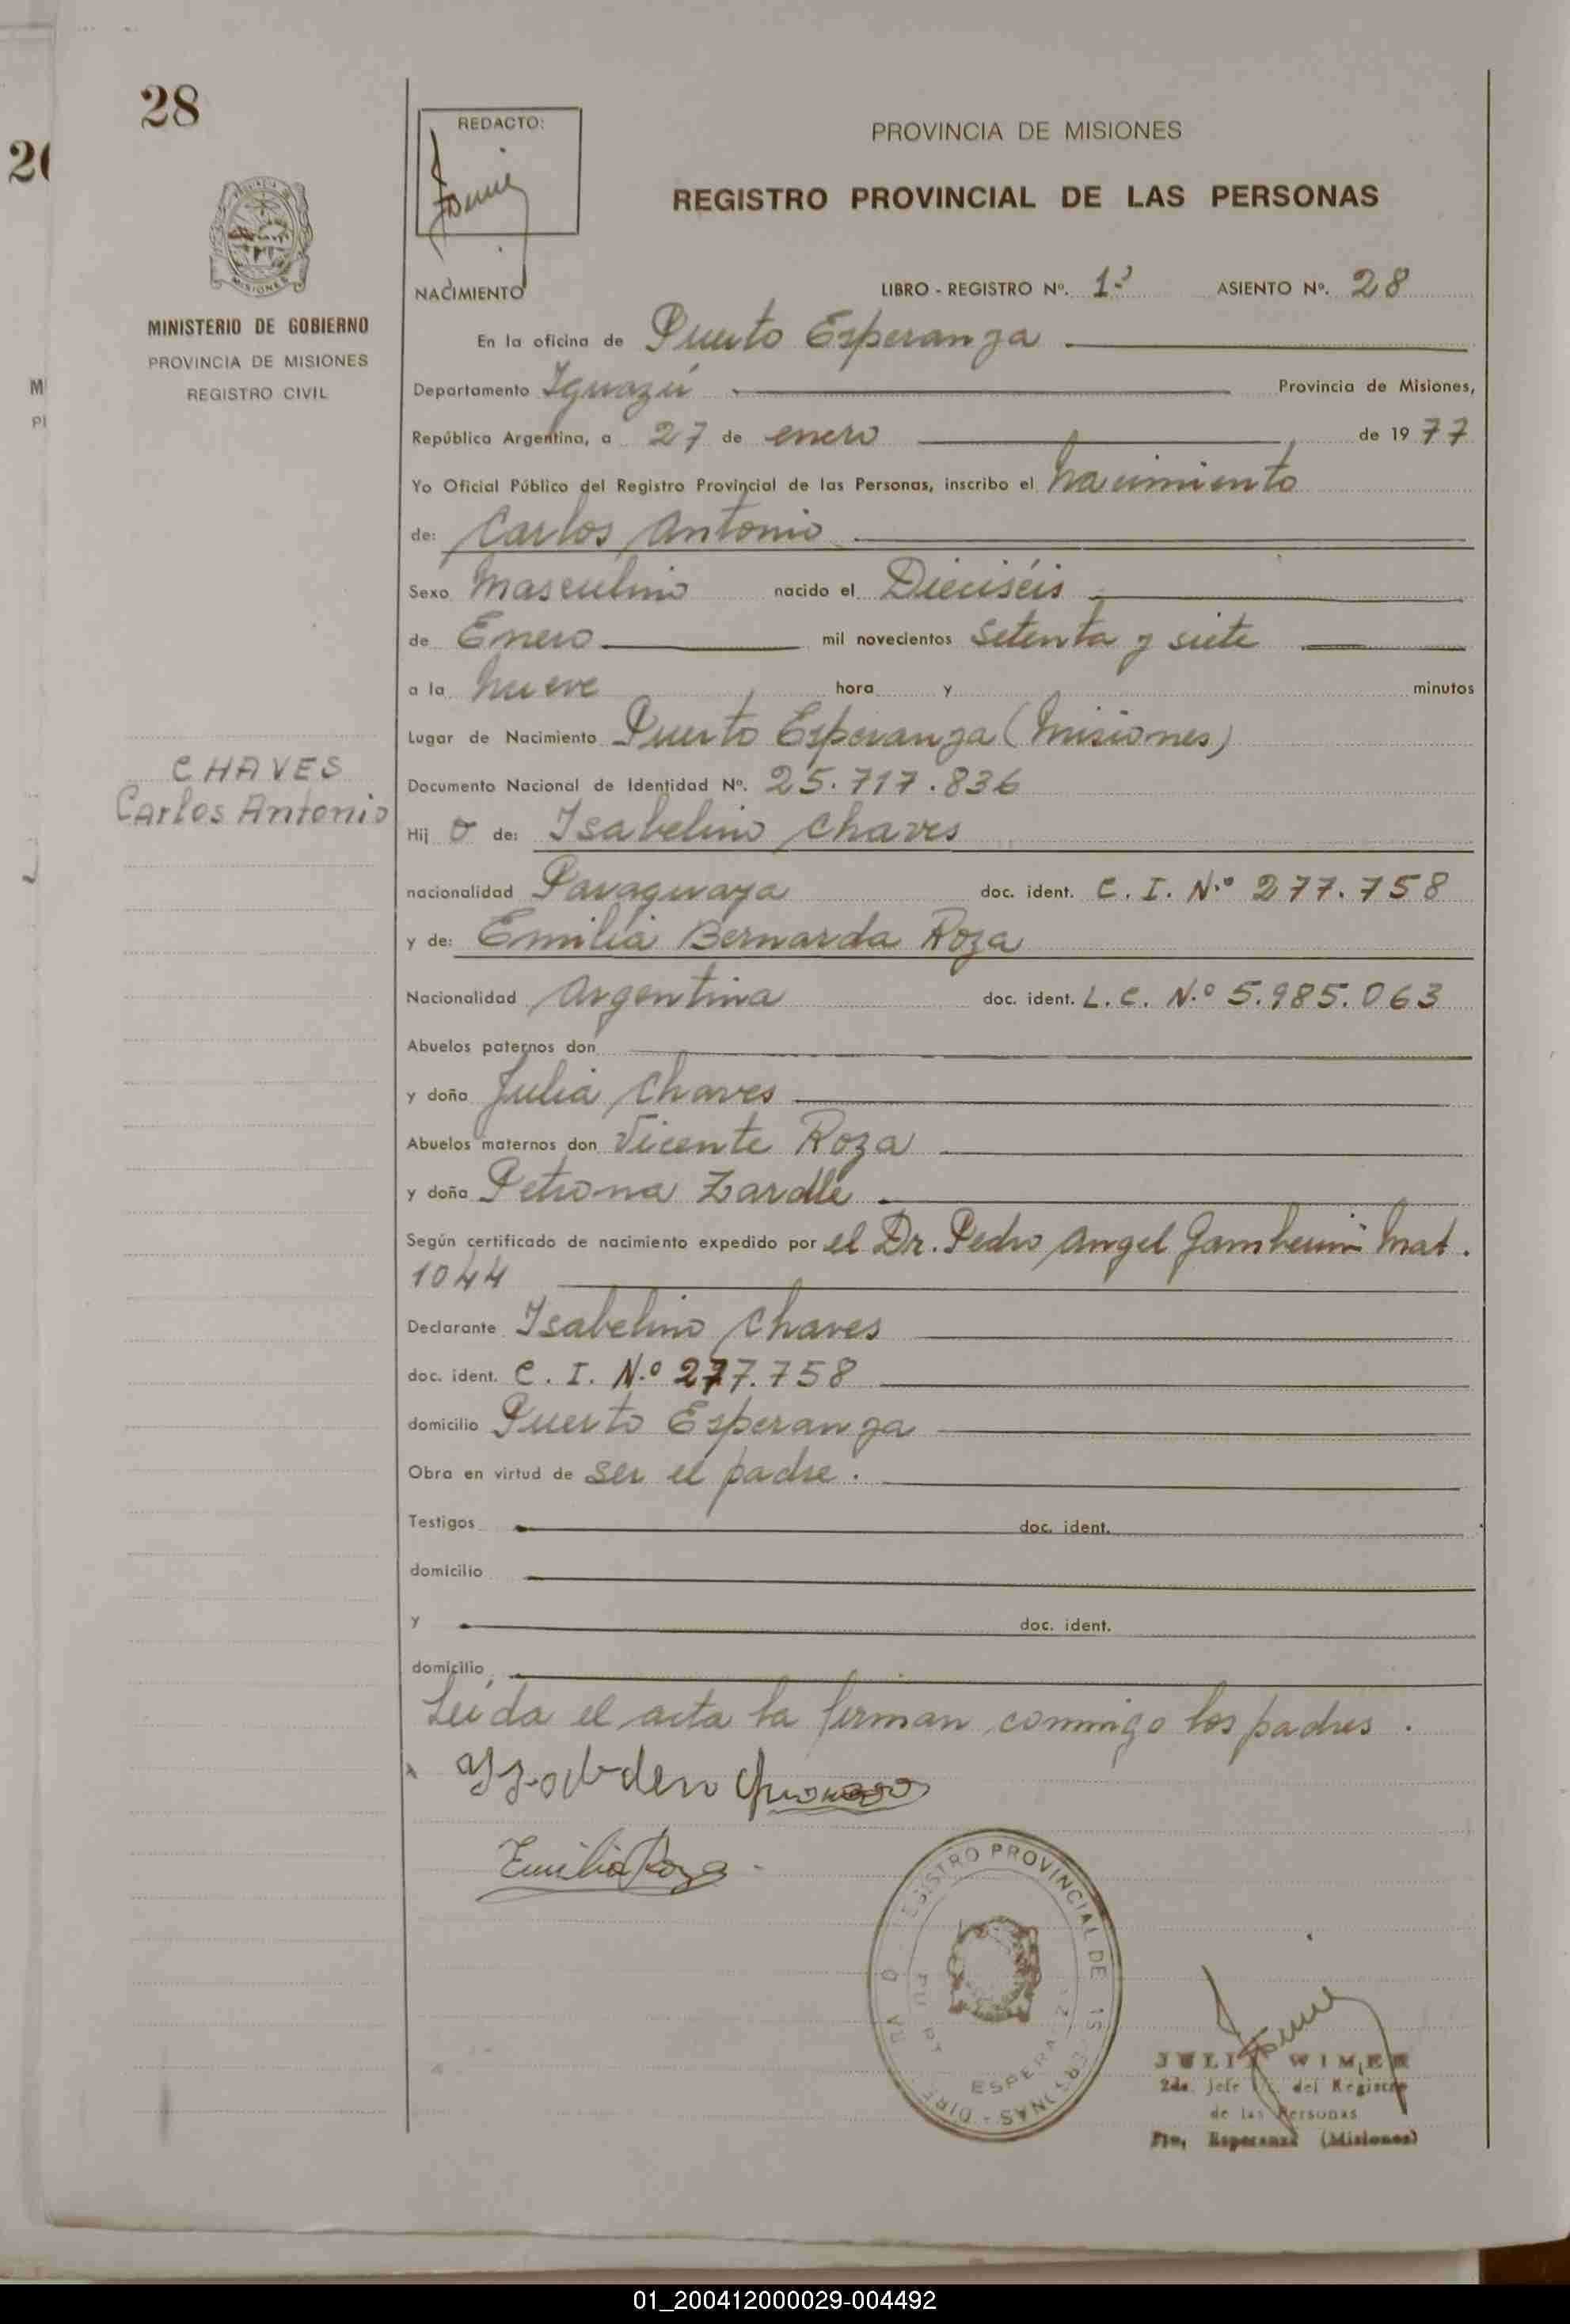 28
REDACTO:
PROVINCIA DE MISIONES
REGISTRO PROVINCIAL DE LAS PERSONAS
MISIONES
MINISTERIO DE GOBIERNO
PROVINCIA DE MISIONES
REGISTRO CIVIL
NACIMIENTO LIBRO - REGISTRO Nº. 1º ASIENTO Nº. 28
En la oficina de Puerto Esperanza
Departamento Iguazú Provincia de Misiones,
República Argentina, a 27 de enero de 1977
Yo Oficial Público del Registro Provincial de las Personas, inscribo el nacimiento
de: Carlos Antonio
Sexo Masculino nacido el Dieciséis
de Enero mil novecientos setenta y siete
a la nueve hora y minutos
Lugar de Nacimiento Puerto Esperanza (Misiones)
CHAVES
Carlos Antonio
Documento Nacional de Identidad Nº. 25.717.836
Hij o de: Isabelino Chaves
nacionalidad Paraguaya doc. ident. C. I. N.º 277.758
y de: Emilia Bernarda Roza
Nacionalidad Argentina doc. ident. L. C. N.º 5.985.063
Abuelos paternos don
y doña Julia Chaves
Abuelos maternos don Vicente Roza
y doña Petrona Zardle
Según certificado de nacimiento expedido por el Dr. Pedro Angel Mat.
1044
Declarante Isabelino Chaves
doc. ident. C. I. N.º 277.758
domicilio Puerto Esperanza
Obra en virtud de ser el padre.
Testigos doc. ident.
domicilio
y doc. ident.
domicilio
Leída el acta la firman conmigo los padres.
Emilia Roza
REGISTRO PROVINCIAL DE
ESPERANZA
WIMER
2do. Jefe del Registro
de las Personas
Pto. Esperanza (Misiones)
01_200412000029-004492